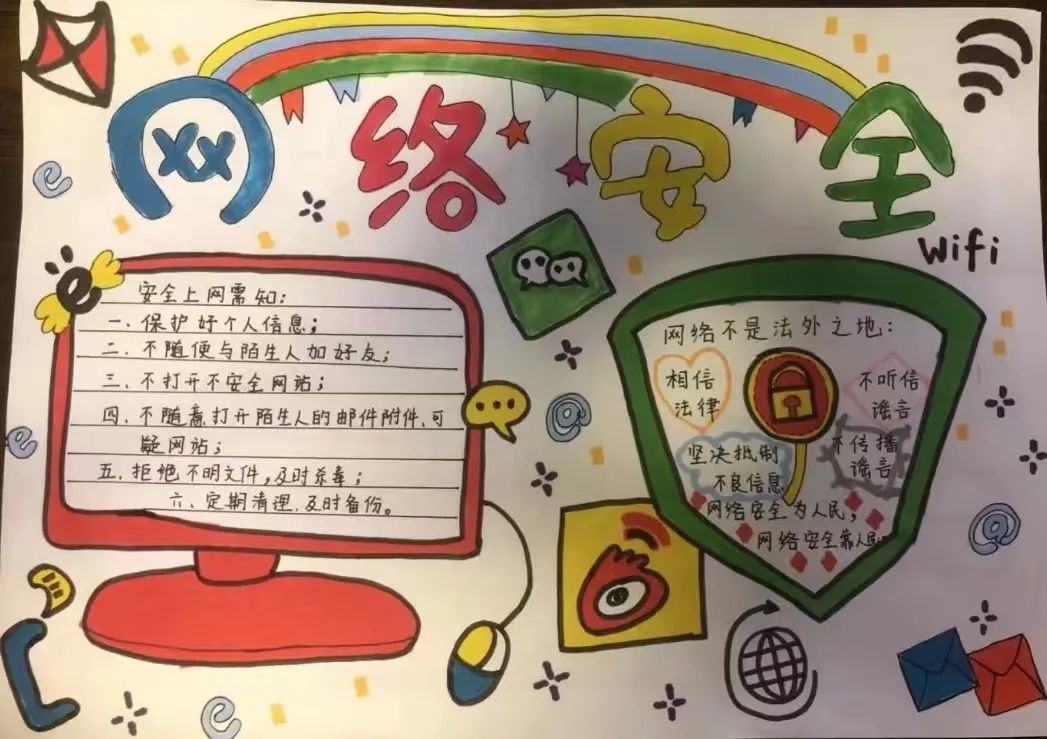 网络安全
Wifi
安全上网需知:
一.保护好个人信息;
二.不随便与陌生人加好友;
三.不打开不安全网站;
四.不随意打开陌生人的邮件附件、可
疑网站;
五.拒绝不明文件,及时杀毒;
六、定期清理、及时备份。
网络不是法外之地:
相信
法律
不听信
谣言
坚决抵制
不良信息
不传播
谣言
网络安全为人民,
网络安全靠人民